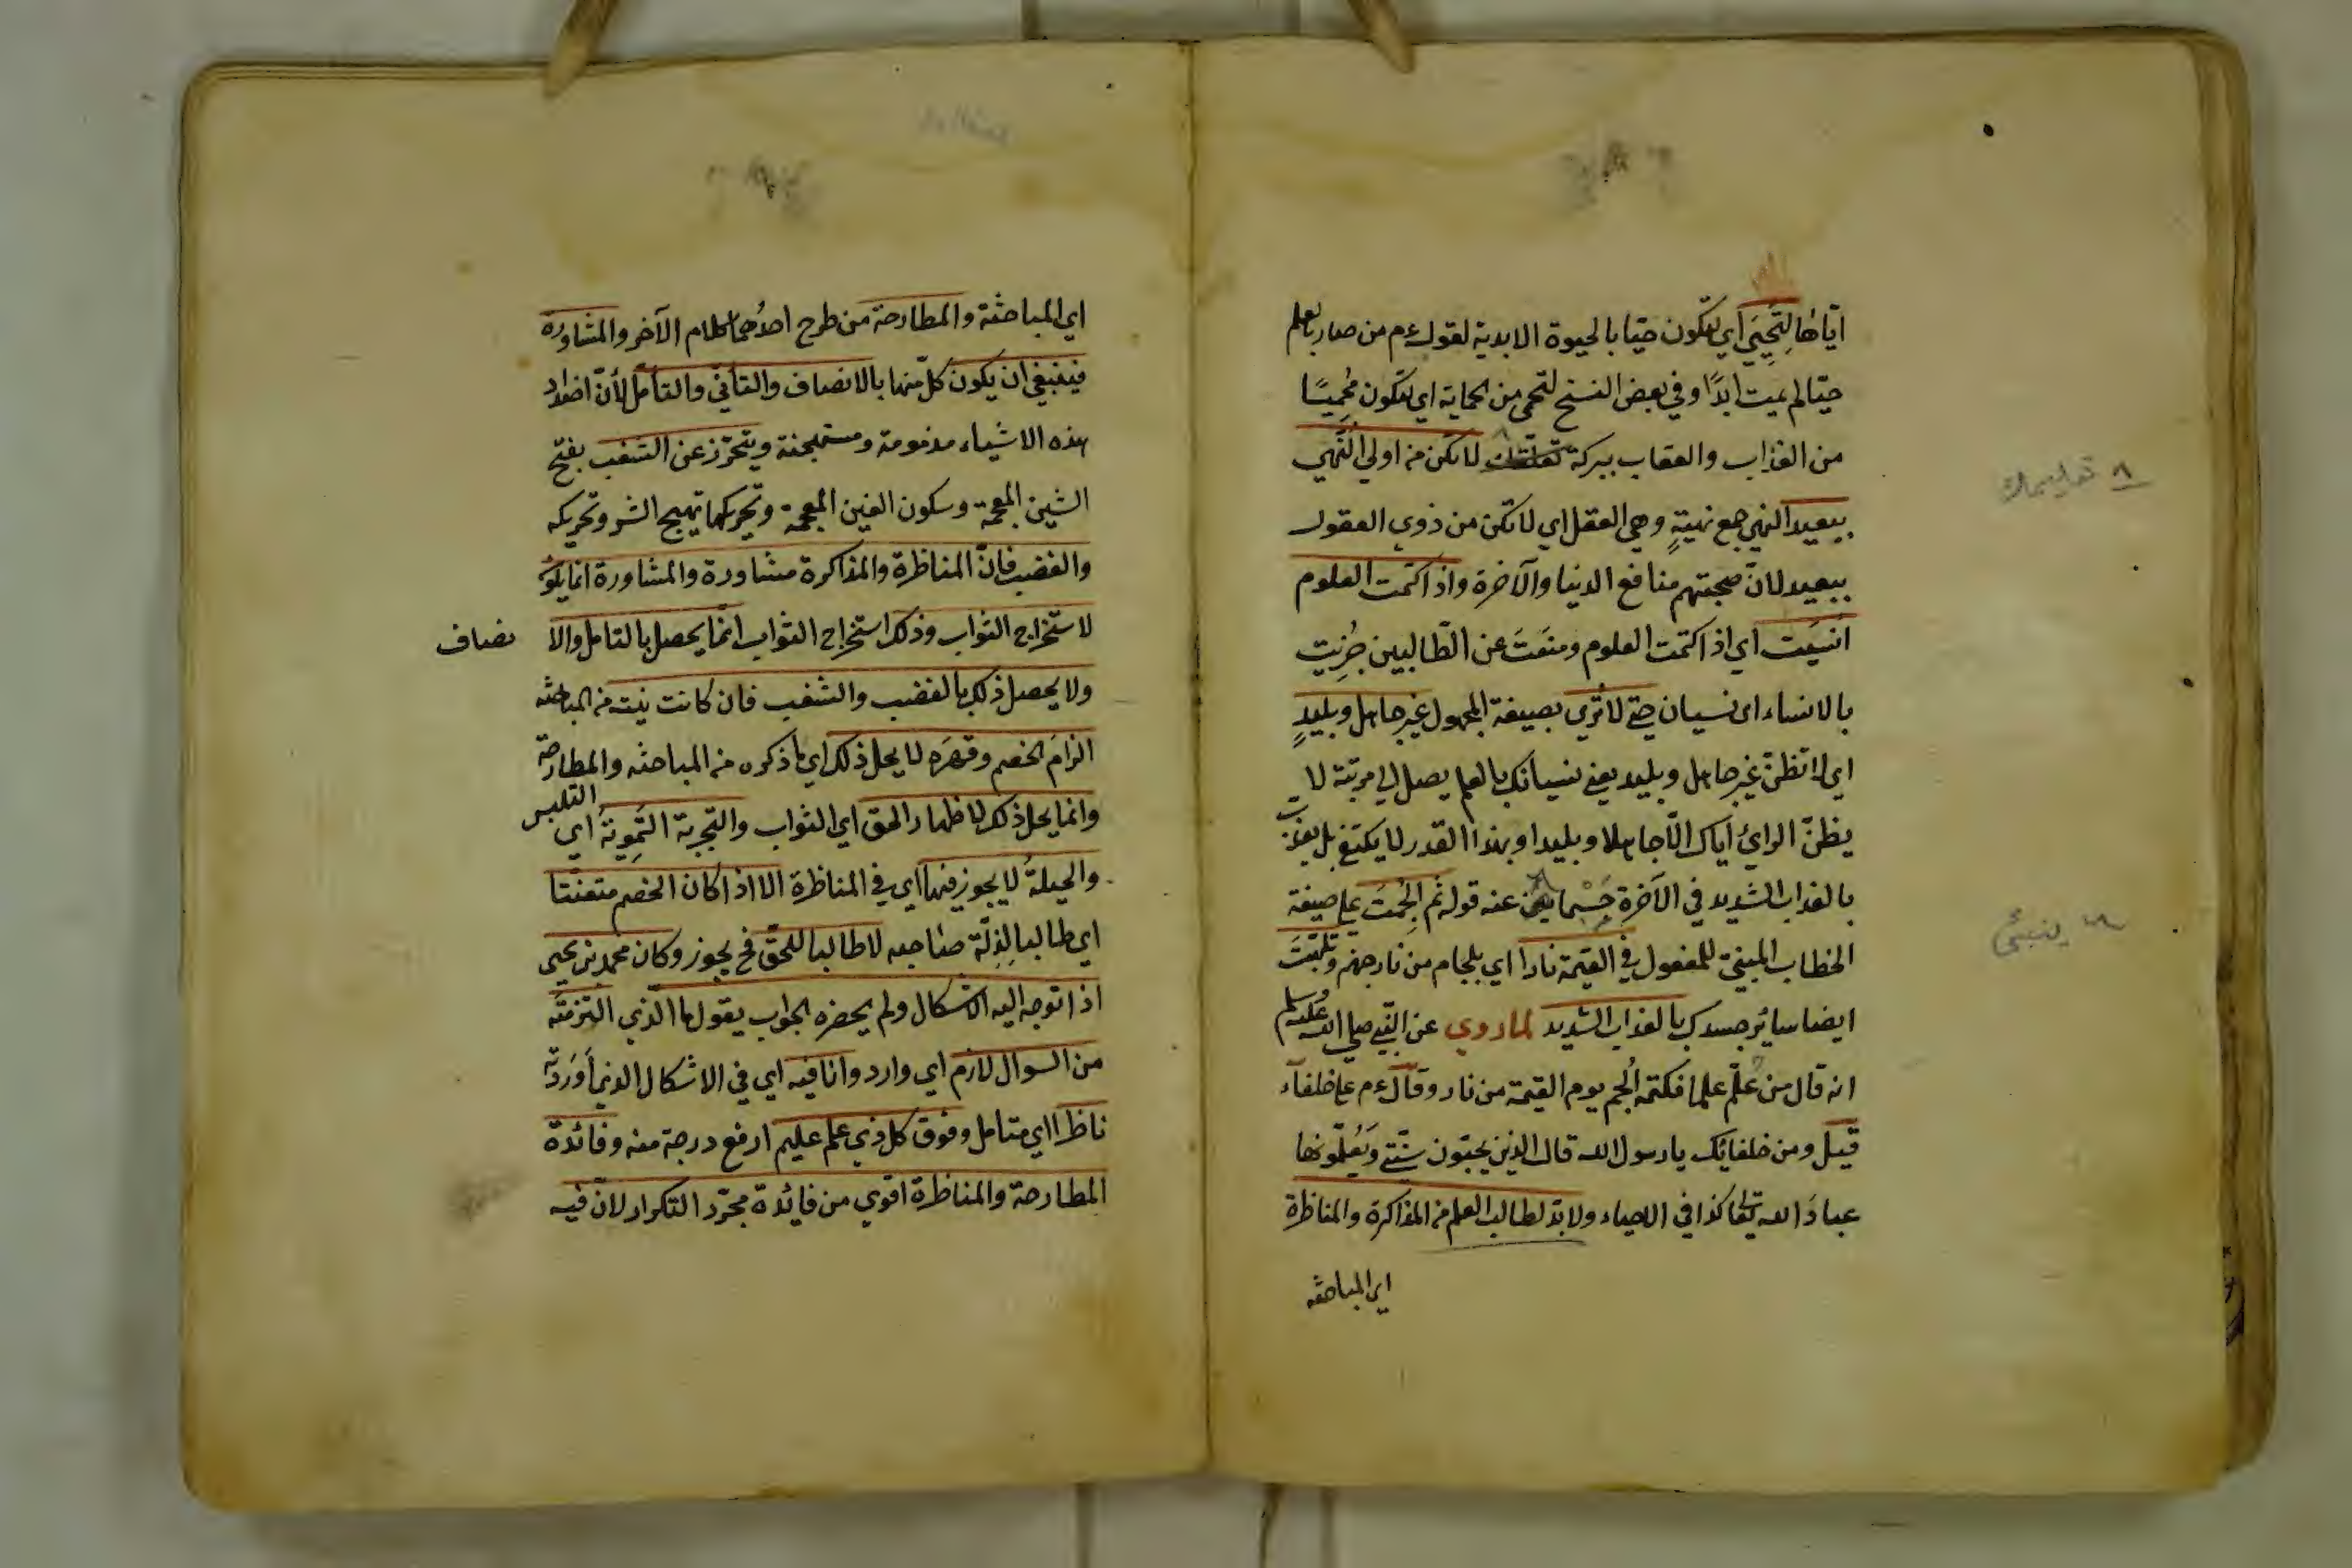 اياها لتحيى اي لتكون حيا بالحيوة الابدية لقوله ع م من صار بالعلم
حيّا لم يمت ابدًا وفي بعض النسخ لتحمى من الحماية اي لتكون مُحميًا
من العذاب والعقاب ببركة لا تكن من اولي النهى
ببعيد النهى جمع نهيةٍ وهي العقل اي لا تكن من ذوي العقول
ببعيد لانّ صحبتهم منافع الدنيا والآخرة واذا كتمت العلوم
اُنسيت اي اذا كتمت العلوم ومنَعتَ عن الطّالبين جُزيت
بالانساء اى نسيان حتى لا تُرى بصيغة المجهول غير جاهل وبليدٍ
اي لا تظنّ غير جاهل وبليد يعنى نسيانك بالعلم يصل الى مرتبة لا
يظنّ الرائ اياك الّا جاهلا وبليدا وبهذا القدر لا يكتفى بل يعذب
بالعذاب الشديد في الآخرة عنه قوله ثم اُلجمتَ على صيغة
الخطاب المبنيّ للمفعول في القيمة نارا اي بلجام من نار جهنم وتلهّبتَ
ايضا سائر جسدك بالعذاب الشديد لما روي عن النبي صلى الله عليه وسلم
انه قال من علّم علما فكتمه اُلجم يوم القيمة من نار وقال ع م على خلفآء
قيل ومن خلفائك يا رسول الله قال الذين يحبّون سنّتي ويُعلّمونها
عبادَ الله تعالى كذا في الاحياء ولا بدّ لطالب العلم من المذاكرة والمناظرة
اي المباحثه
٨ تعليمك
ينبئ
اي المباحثة والمطارحة من طرح احدُهما كلام الآخر والمشاوره
فينبغي ان يكون كلّ منها بالانصاف والتأنّي والتأمّل لأنّ اضداد
هذه الاشياء مذمومة ومستهجنة ويتحرّز عن الشغب بفتح
الشين المعجمة وسكون الغين المعجمة وتحريكها تهييج الشر وتحريكه
والغضب فانّ المناظرة والمذاكرة مشاورة والمشاورة انما يكون
لاستخراج الثواب وذلك استخراج الثواب انّما يحصل بالتامل والا نصاف
ولا يحصل ذلك بالغضب والشغب فان كانت نيته من المباحثه
الزامَ الخصم وقهرَه لا يحل ذلك اي ما ذكره من المباحثه والمطارحة
وانما يحل ذلك لاظهار الحق اي الثواب والتجربة التموية اي التلبيس
والحيلةُ لا يجوز فيها اي في المناظرة الا اذا كان الخصم متعنّتا
اي طالبا لِذِلّة صاحبه لا طالبا للحقّ فح يجوز وكان محمد بن يحيى
اذا توجه اليه الاشكال ولم يحضره الجواب يقول ما الّذي التزمتَه
من السوال لازم اي وارد وانا فيه اي في الاشكال الذي أورَدتَه
ناظر اي متامل وفوق كل ذي علم عليم ارفع درجة منه وفائدة
المطارحة والمناظرة اقوي من فايدة مجرّد التكرار لانّ فيه